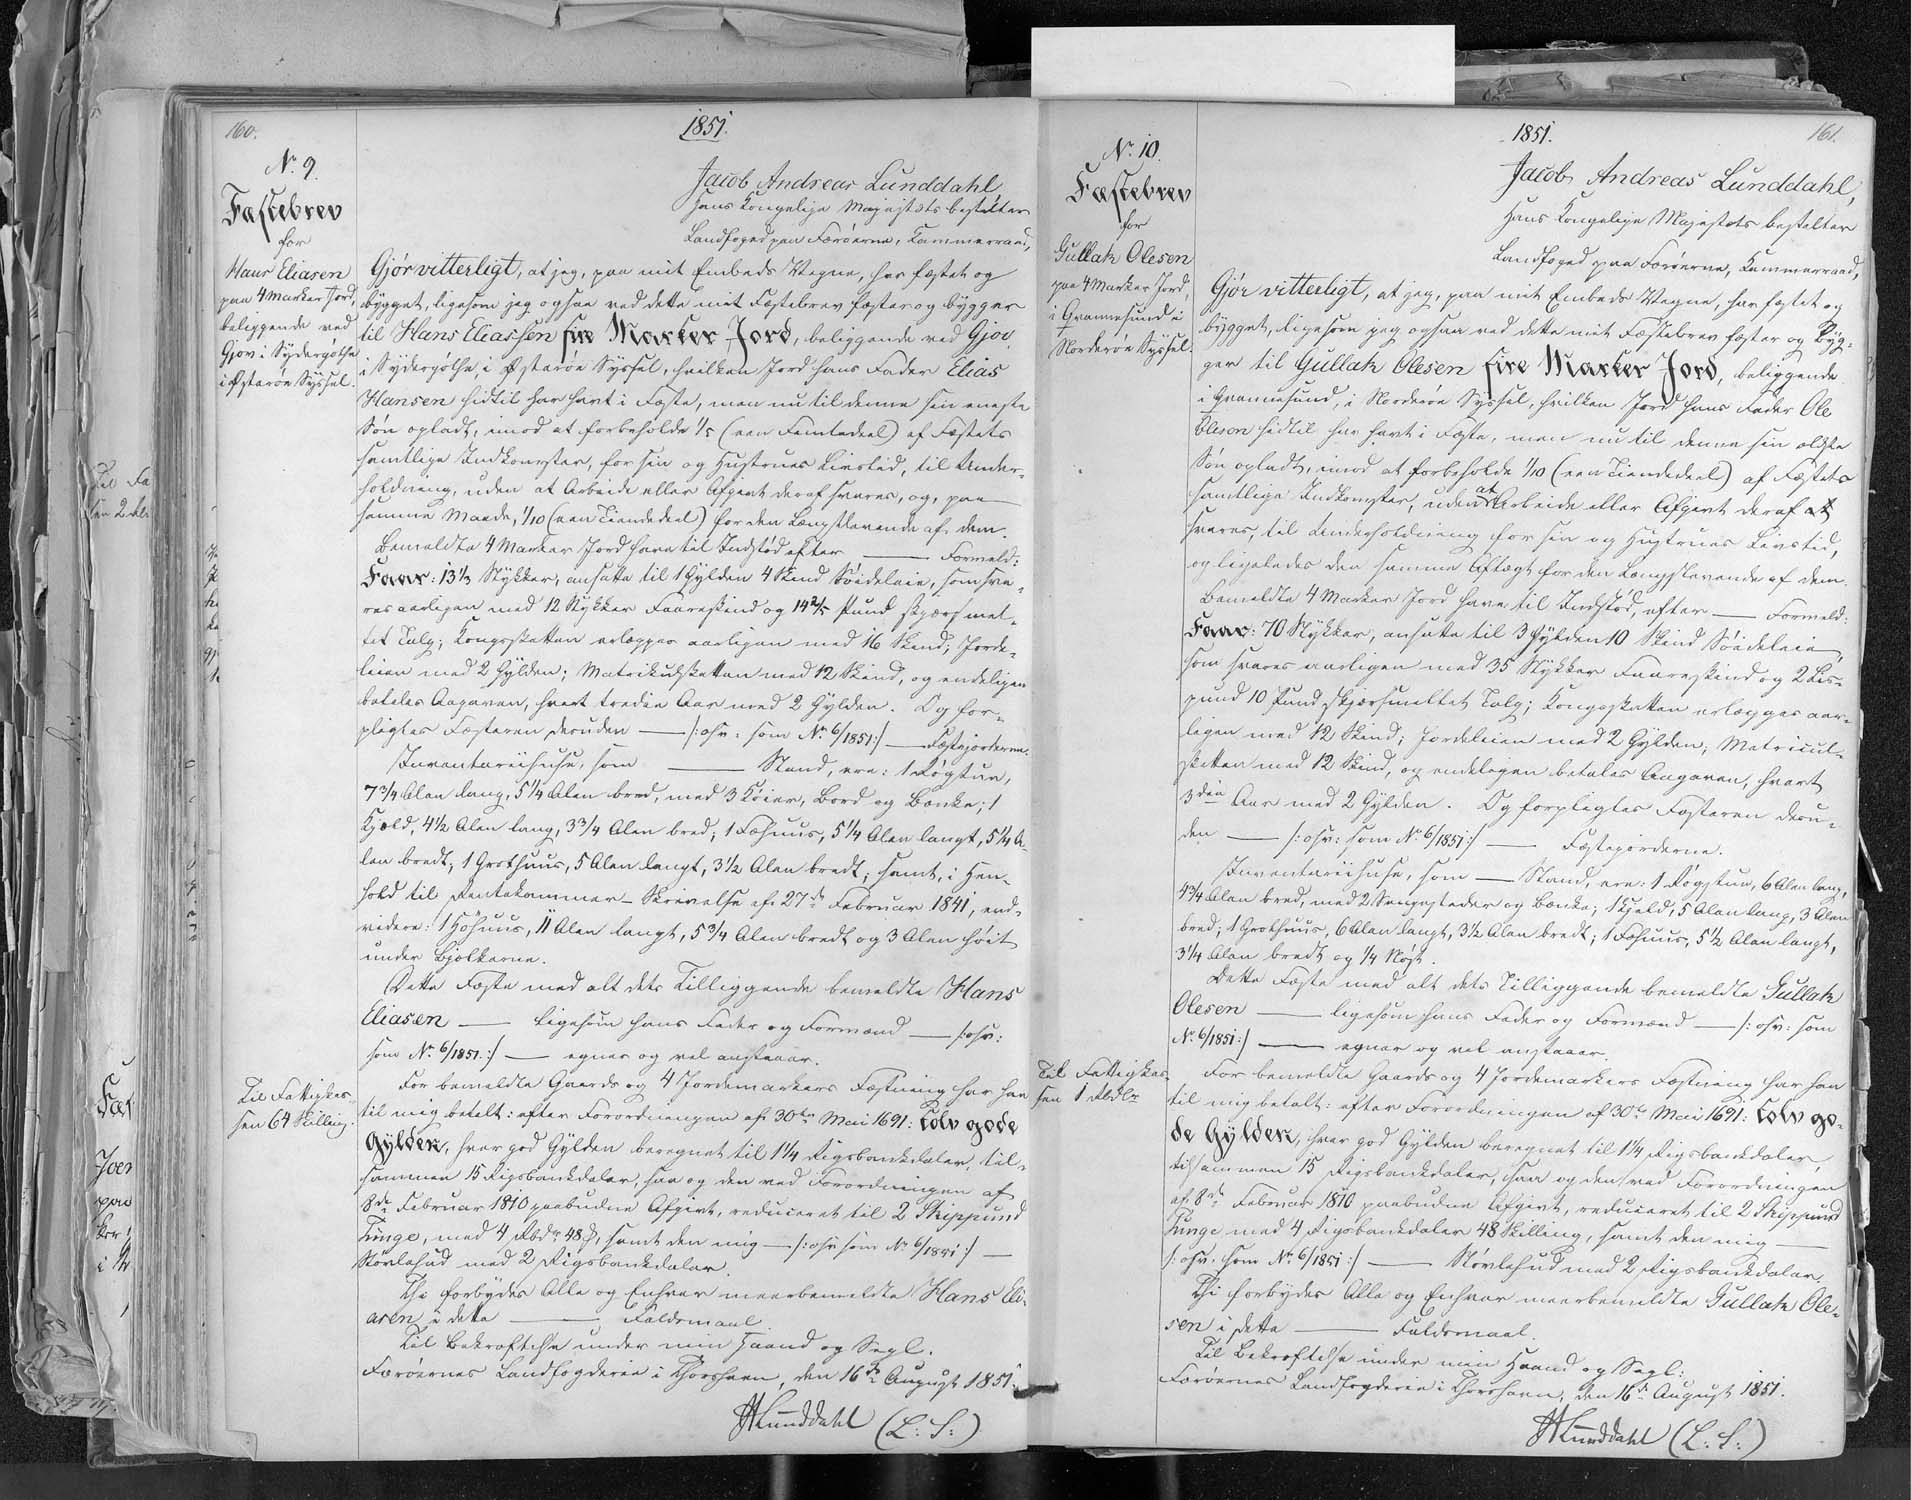 160.
1851.
No. 9.
Fæstebrev
for
Hans Eliasen
paa 4 Marker Jord,
beliggende ved
Gjov i Sydergøthe
i Østerøe Syssel.
Jacob Andreas Lunddahl
Hans Kongelige Majestæts bestalter
Landfoged paa Færøerne, Kammerraad,
Gjør vitterligt, at jeg, paa mit Embeds Vegne, har fæstet og
bygget, ligesom jeg ogsaa ved dette mit Fæstebrev fæster og bygger
til Hans Eliassen fire Marker Jord, beliggende ved Gjov
i Sydergøthe, i Østerøe Syssel, hvilken Jord hans Fader Elias
Hansen hidtil har havt i Fæste, men nu til denne sin eneste
Søn opladt, imod at forbeholde 1/5 (een Femtedeel) af Fæstets
samtlige Indkomster, for sin og Hustrues Livstid, til Under-
holdning, uden at Arbeide eller Afgivt deraf svares, og, paa
samme Maade, 1/10 (een Tiendedeel) for den Længstlevende af dem.
Bemeldte 4 Marker Jord have til Indstød efter — Formeld:
Faar: 13 1/3 Stykker, ansatte til 1 Gylden 4 Skind Søideleie, som sva-
res aarligen med 12 Stykker Faareskind og 14 2/5 Pund skjærsmel-
tet Talg; Kongsskatten erlægges aarligen med 16 Skind; Jorde-
leien med 2 Gylden; Matrikulskatten med 12 Skind, og endeligen
betales Aagaven, hvert tredie Aar med 2 Gylden. Og for-
pligtes Fæsteren desuden — /: osv: som No. 6/1851 :/ — Fæstejorderne.
Inventariihuse, som — Stand, ere: 1 Røgstue,
7 3/4 Alen lang, 5 1/4 Alen bred, med 3 Køier, Bord og Bænke; 1
Kjeld, 4 1/2 Alen lang, 3 3/4 Alen bred; 1 Fæhuus, 5 1/4 Alen langt, 5 1/4 A-
len bredt; 1 Grothuus, 5 Alen langt, 3 1/2 Alen bredt; samt, i Hen-
hold til Rentekammer-Skrivelse af 27de Februar 1841, end-
videre: 1 Høhuus, 11 Alen langt, 5 3/4 Alen bredt og 3 Alen høit
under Bjelkerne.
Dette Fæste med alt dets Tilliggende bemeldte Hans
Eliasen — ligesom hans Fader og Formænd — /: osv:
som No. 6/1851. :/ — egner og vel anstaaer.
Til Fattigkas-
sen 64 Skilling.
For bemeldte Gaards og 4 Jordemarkers Fæstning har han
til mig betalt: efter Forordningen af 30te Mai 1691: tolv gode
Gylden, hver god Gylden beregnet til 1 1/4 Rigsbankdaler, til-
sammen 15 Rigsbankdaler, saa og den ved Forordningen af
8de Februar 1810 paabudne Afgivt, reduceret til 2 Skippund
Tunge, med 4 Rbdr 48 ß, samt den mig — /: osv som No. 6/1851 :/ —
Støvlehud med 2 Rigsbankdaler.
Thi forbydes Alle og Enhver meerbemeldte Hans Eli-
asen i dette — Faldsmaal.
Til Bekræftelse under min Haand og Segl.
Færøernes Landfogderie i Thorshavn, den 16de August 1851.
JALunddahl (L: S:)
161.
1851.
No. 10.
Fæstebrev
for
Gullak Olesen
paa 4 Marker Jord,
i Qvannesund i
Norderøe Syssel.
Jacob Andreas Lunddahl,
Hans Kongelige Majestæts bestalter
Landfoged paa Færøerne, Kammerraad,
Gjør vitterligt, at jeg, paa mit Embeds Vegne, har fæstet og
bygget, ligesom jeg ogsaa ved dette mit Fæstebrev fæster og byg-
ger til Gullak Olesen fire Marker Jord, beliggende
i Qvannesund, i Norderøe Syssel, hvilken Jord hans Fader Ole
Olesen hidtil har havt i Fæste, men nu til denne sin ældste
Søn opladt, imod at forbeholde 1/10 (een Tiendedeel) af Fæstets
samtlige Indkomster, uden at Arbeide eller Afgivt deraf at
svares, til Underholdning for sin og Hustrues Livstid,
og ligeledes den samme Aftægt for den Længstlevende af dem.
Bemeldte 4 Marker Jord have til Indstød, efter — Formeld:
Faar: 70 Stykker, ansatte til 3 Gylden 10 Skind Søideleie,
som svares aarligen med 35 Stykker Faareskind og 2 Lis-
pund 10 Pund skjærsmeltet Talg; Kongsskatten erlægges aar-
ligen med 12 Skind; Jordeleien med 2 Gylden; Matricul-
skatten med 12 Skind, og endeligen betales Aagaven, hvert
3die Aar med 2 Gylden. Og forpligtes Fæsteren desu-
den — /: osv: som No. 6/1851 :/ — Fæstejorderne.
Inventariihuse, som — Stand, ere: 1 Røgstue, 6 Alen lang,
4 3/4 Alen bred, med 2 Sengesteder og Bænke; 1 Kjeld, 5 Alen lang, 3 Alen
bred; 1 Grothuus, 6 Alen langt, 3 1/2 Alen bredt; 1 Fæhuus, 5 1/2 Alen langt,
3 1/4 Alen bredt og 1/4 Nøst.
Dette Fæste med alt dets Tilliggende bemeldte Gullak
Olesen — ligesom hans Fader og Formænd — /: osv: som
No. 6/1851 :/ — egner og vel anstaaer.
Til Fattigkas-
sen 1 Rbdlr
For bemeldte Gaards og 4 Jordemarkers Fæstning har han
til mig betalt: efter Forordningen af 30te Mai 1691: tolv go-
de Gylden, hver god Gylden beregnet til 1 1/4 Rigsbankdaler,
tilsammen 15 Rigsbankdaler, saa og den ved Forordningen
af 8de Februar 1810 paabudne Afgivt, reduceret til 2 Skippund
Tunge med 4 Rigsbankdaler 48 Skilling, samt den mig —
/: osv. som No. 6/1851 :/ — Støvlehud med 2 Rigsbankdaler.
Thi forbydes Alle og Enhver meerbemeldte Gullak Ole-
sen i dette — Faldsmaal.
Til Bekræftelse under min Haand og Segl:
Færøernes Landfogderie i Thorshavn, den 16de August 1851.
JALunddahl (L: S:)